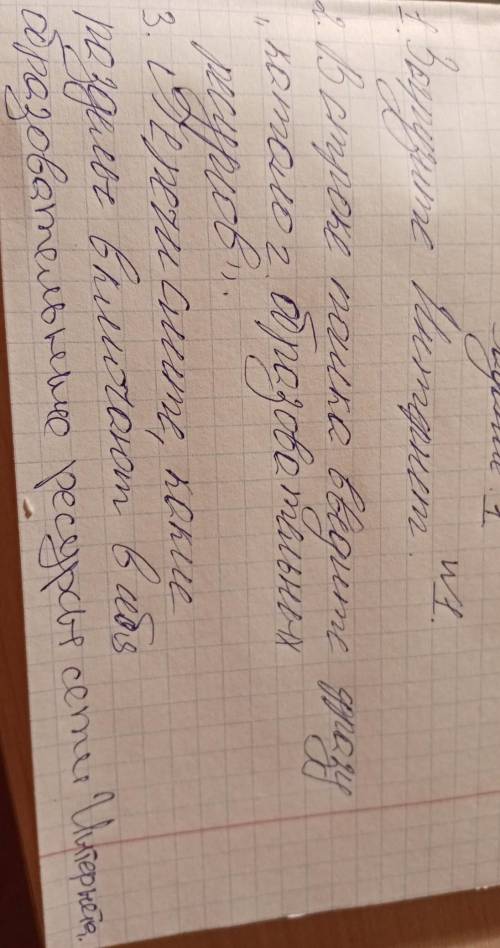 №1.
1. Загрузите Интернет.
2. В строке поиска введите фразу
"каталог образовательных
ресурсов".
3. Перечислите, какие
разделы включают в себя
образовательные ресурсы сети Интернета.